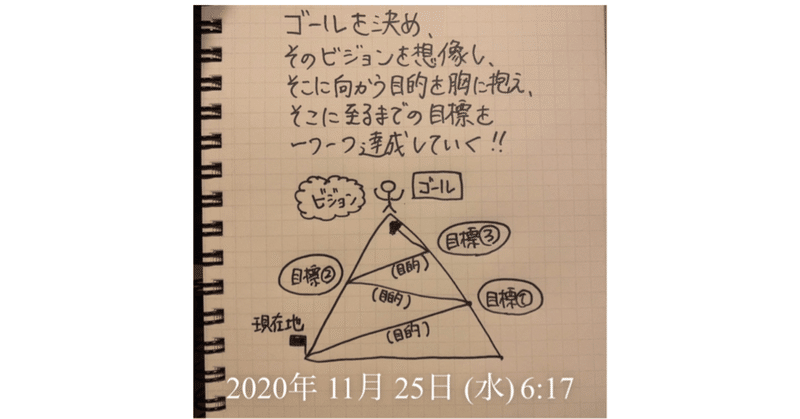 ゴールを決め、
そのビジョンを想像し、
そこに向かう目的を胸に抱え、
そこに至るまでの目標を
一つ一つ達成していく!!
ビジョン
ゴール
目標③
(目的)
目標②
(目的)
目標①
現在地
(目的)
2020年 11月 25日 (水) 6:17